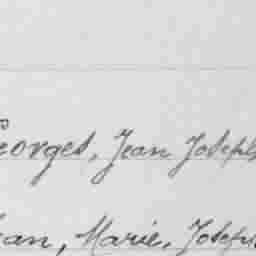 eorges, Jean Joseph
ean, Marie, Joseph